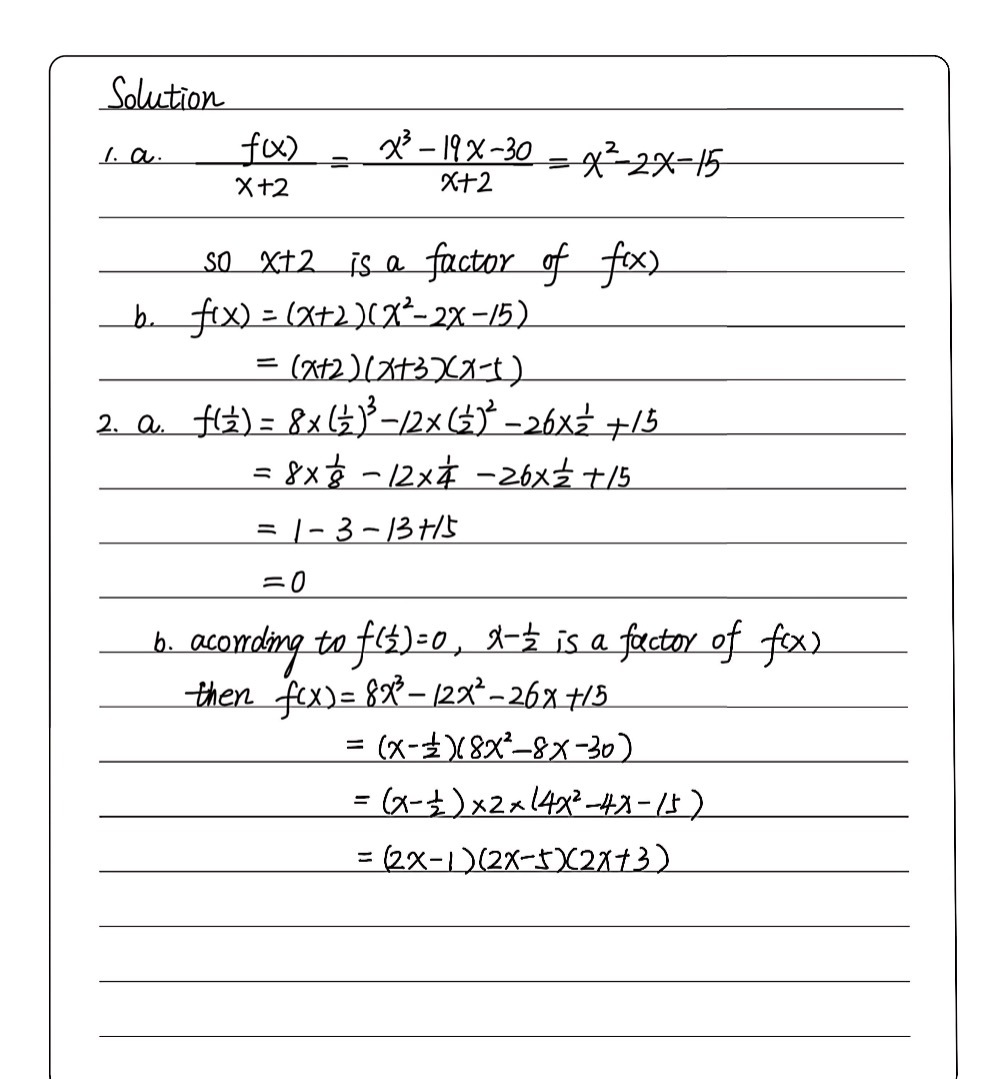 Solution
1. a. f(x)/(x+2) = (x³-19x-30)/(x+2) = x²-2x-15
so x+2 is a factor of f(x)
b. f(x) = (x+2)(x²-2x-15)
= (x+2)(x+3)(x-5)
2. a. f(½) = 8×(½)³-12×(½)²-26×½+15
= 8×⅛-12×¼-26×½+15
= 1-3-13+15
=0
b. acorrding to f(½)=0, x-½ is a factor of f(x)
then f(x)= 8x³-12x²-26x+15
= (x-½)(8x²-8x-30)
= (x-½)×2×(4x²-4x-15)
= (2x-1)(2x-5)(2x+3)